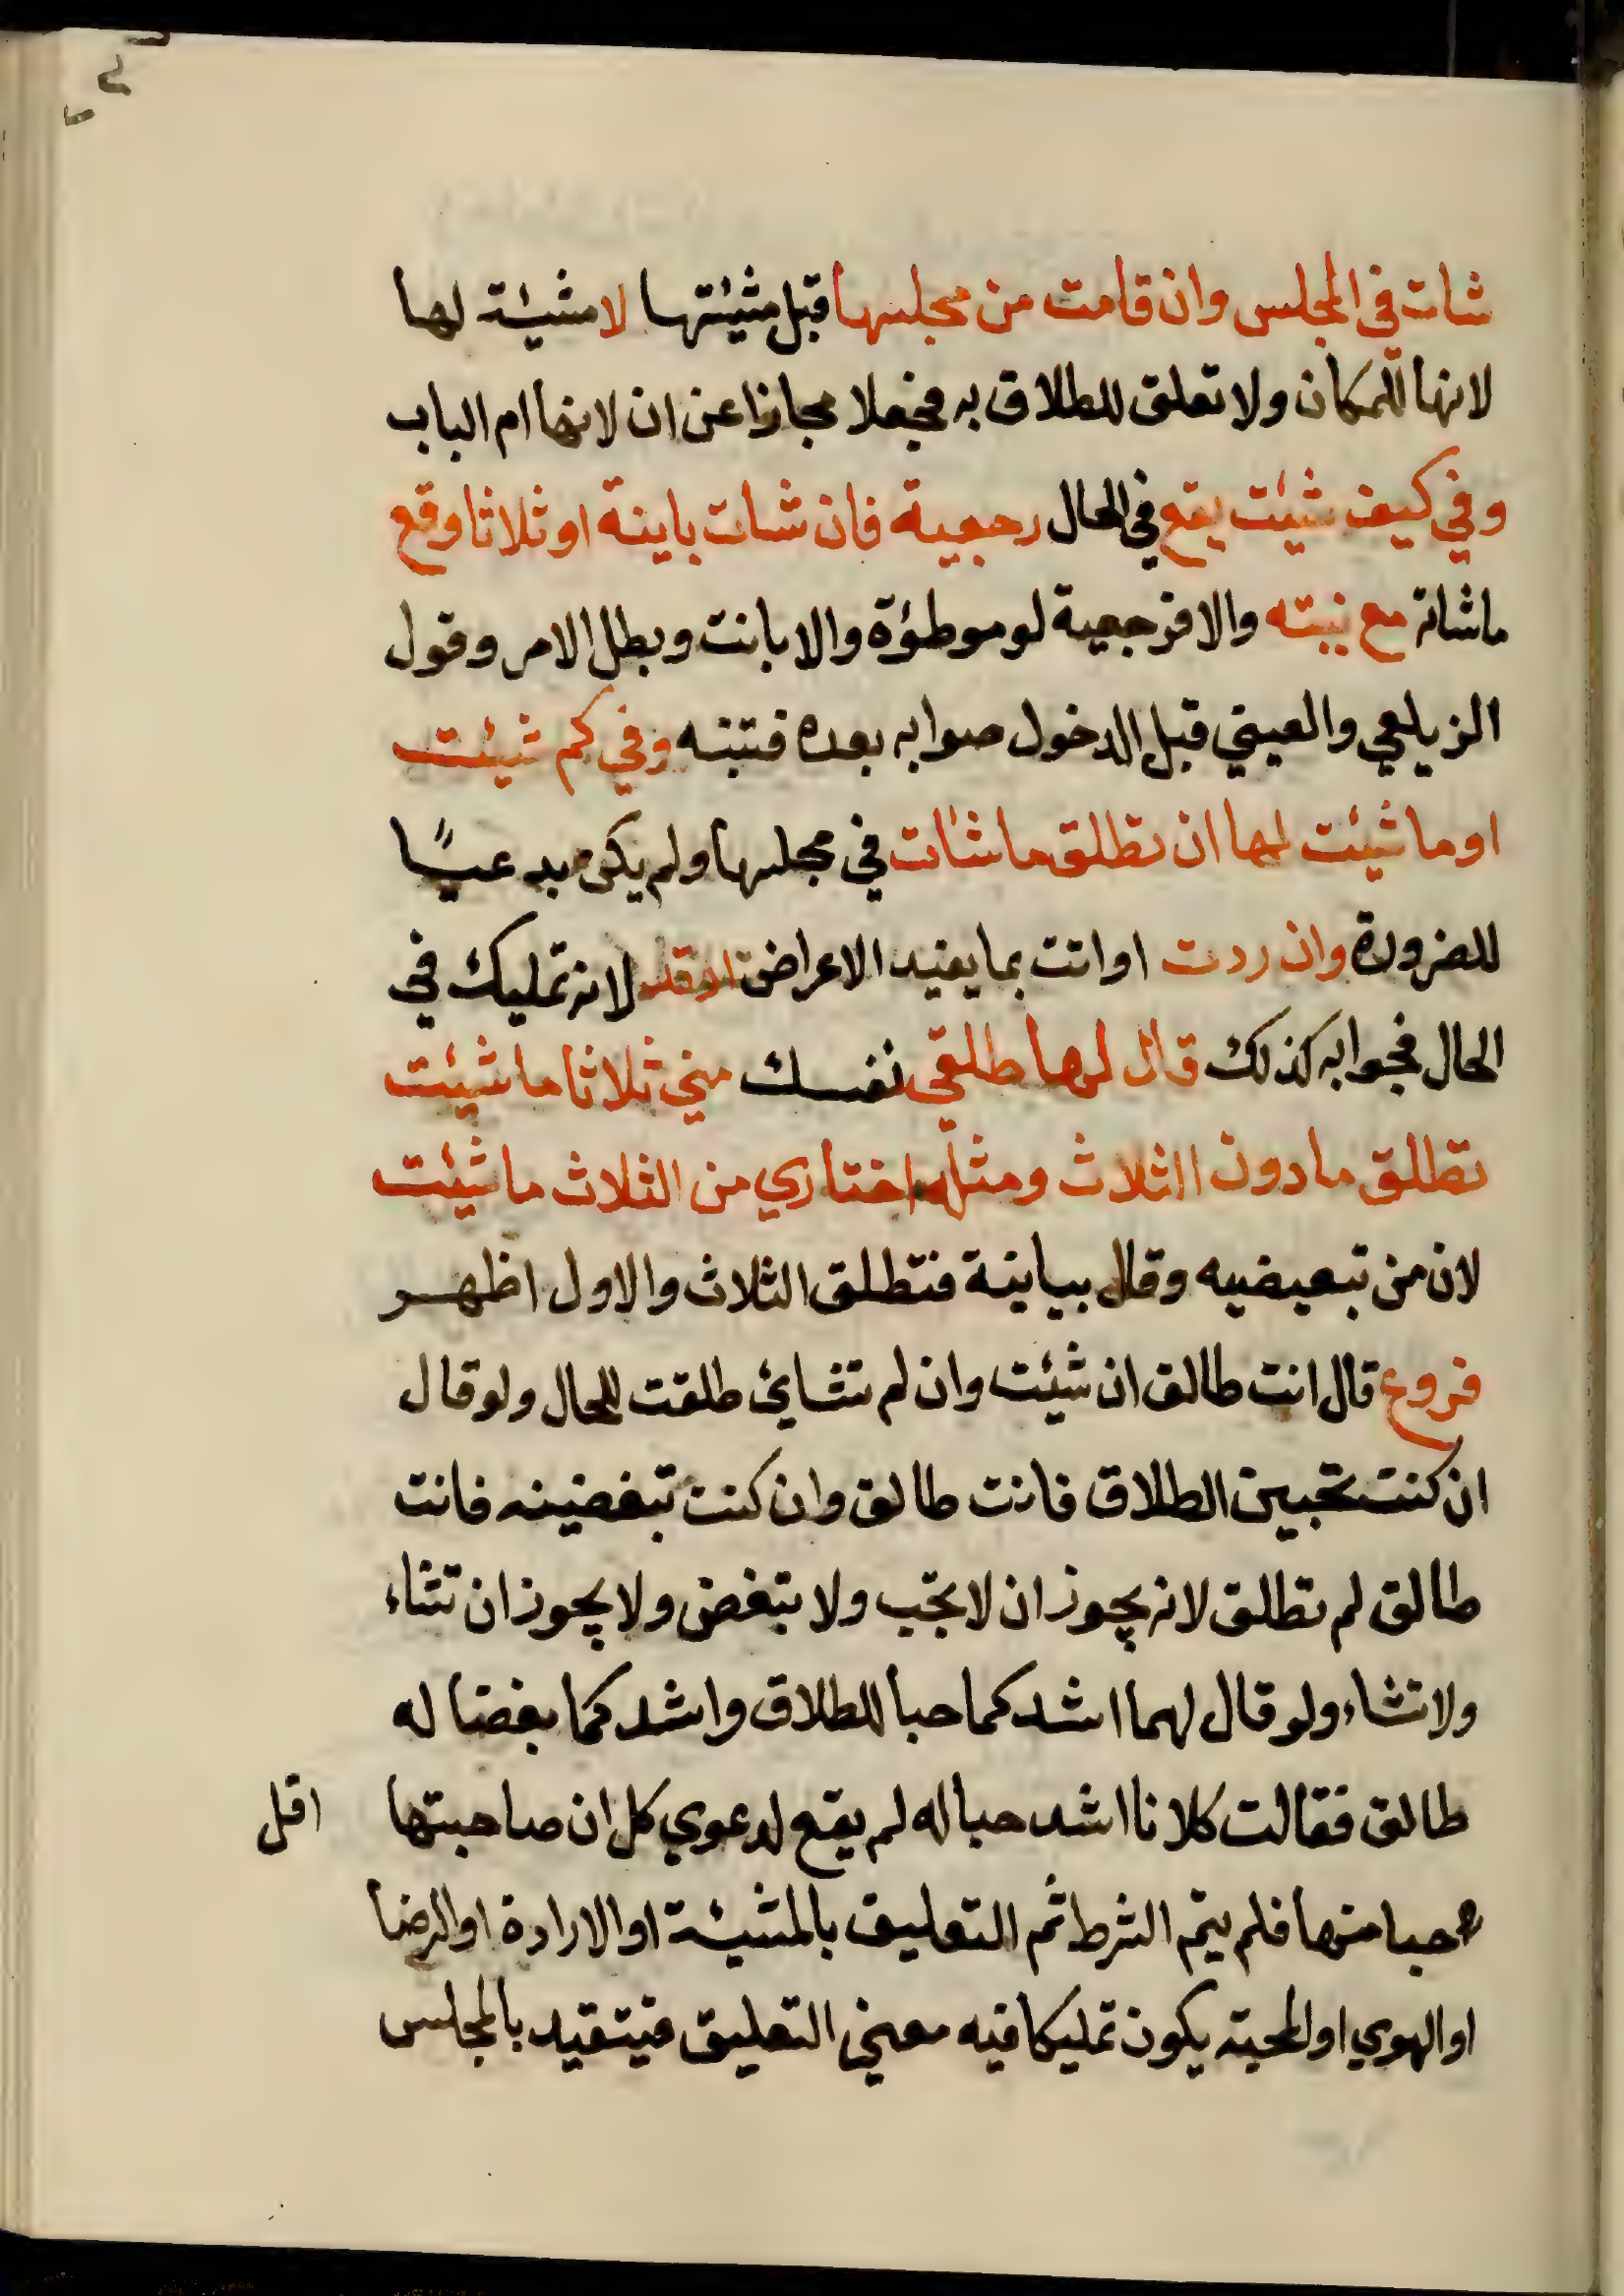 شات في المجلس وان قامت من مجلسها قبل مشيئتها لا مشيئة لها
لانها للمكان ولا تعلق للطلاق به فجعلا مجازا عن ان لانها ام الباب
وفي كيف شيئت يقع في الحال رجعية فان شات باينة او ثلاثا وقع
ماشاته مع نيته والا فرجعية لو موطؤة والا بانت وبطل الامر وقول
الزيلعي والعيني قبل الدخول صوابه بعده فتنبه وفي كم شيئت
او ما شيئت لها ان تطلق ما شات في مجلسها ولم يكن بدعيًا
للضرورة وان ردت او اتت بما يفيد الاعراض ارتد لانه تمليك في
الحال فجوابه كذلك قال لها طلقي نفسك من ثلاثا ما شيئت
تطلق ما دون الثلاث ومثله اختاري من الثلاث ما شيئت
لان من تبعيضيه وقالا بيانية فتطلق الثلاث والاول اظهر
فروع قال انت طالق ان شيئت وان لم تشائ طلقت للحال ولو قال
ان كنت تحبين الطلاق فانت طالق وان كنت تبغضينه فانت
طالق لم تطلق لانه يجوز ان لا تحب ولا تبغض ولا يجوز ان تشاء
ولا تشاء ولو قال لهما اشدكما حبا للطلاق واشدكما بغضا له
طالق فقالت كلانا اشد حبا له لم يقع لدعوي كل ان صاحبتها اقل
حبا منها فلم يتم الشرط ثم التعليق بالمشيئة او الارادة او الرضا
او الهوي او المحبة يكون تمليكا فيه معني التعليق فيتقيد بالمجلس